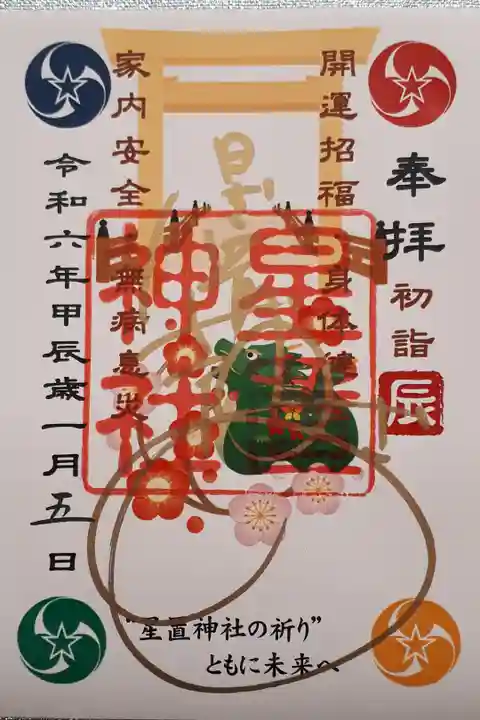 奉拝
初詣
辰
開運招福 身体健
家内安全 無病息災
星置
神社
令和六年甲辰歳一月五日
"星置神社の祈り"
ともに未来へ